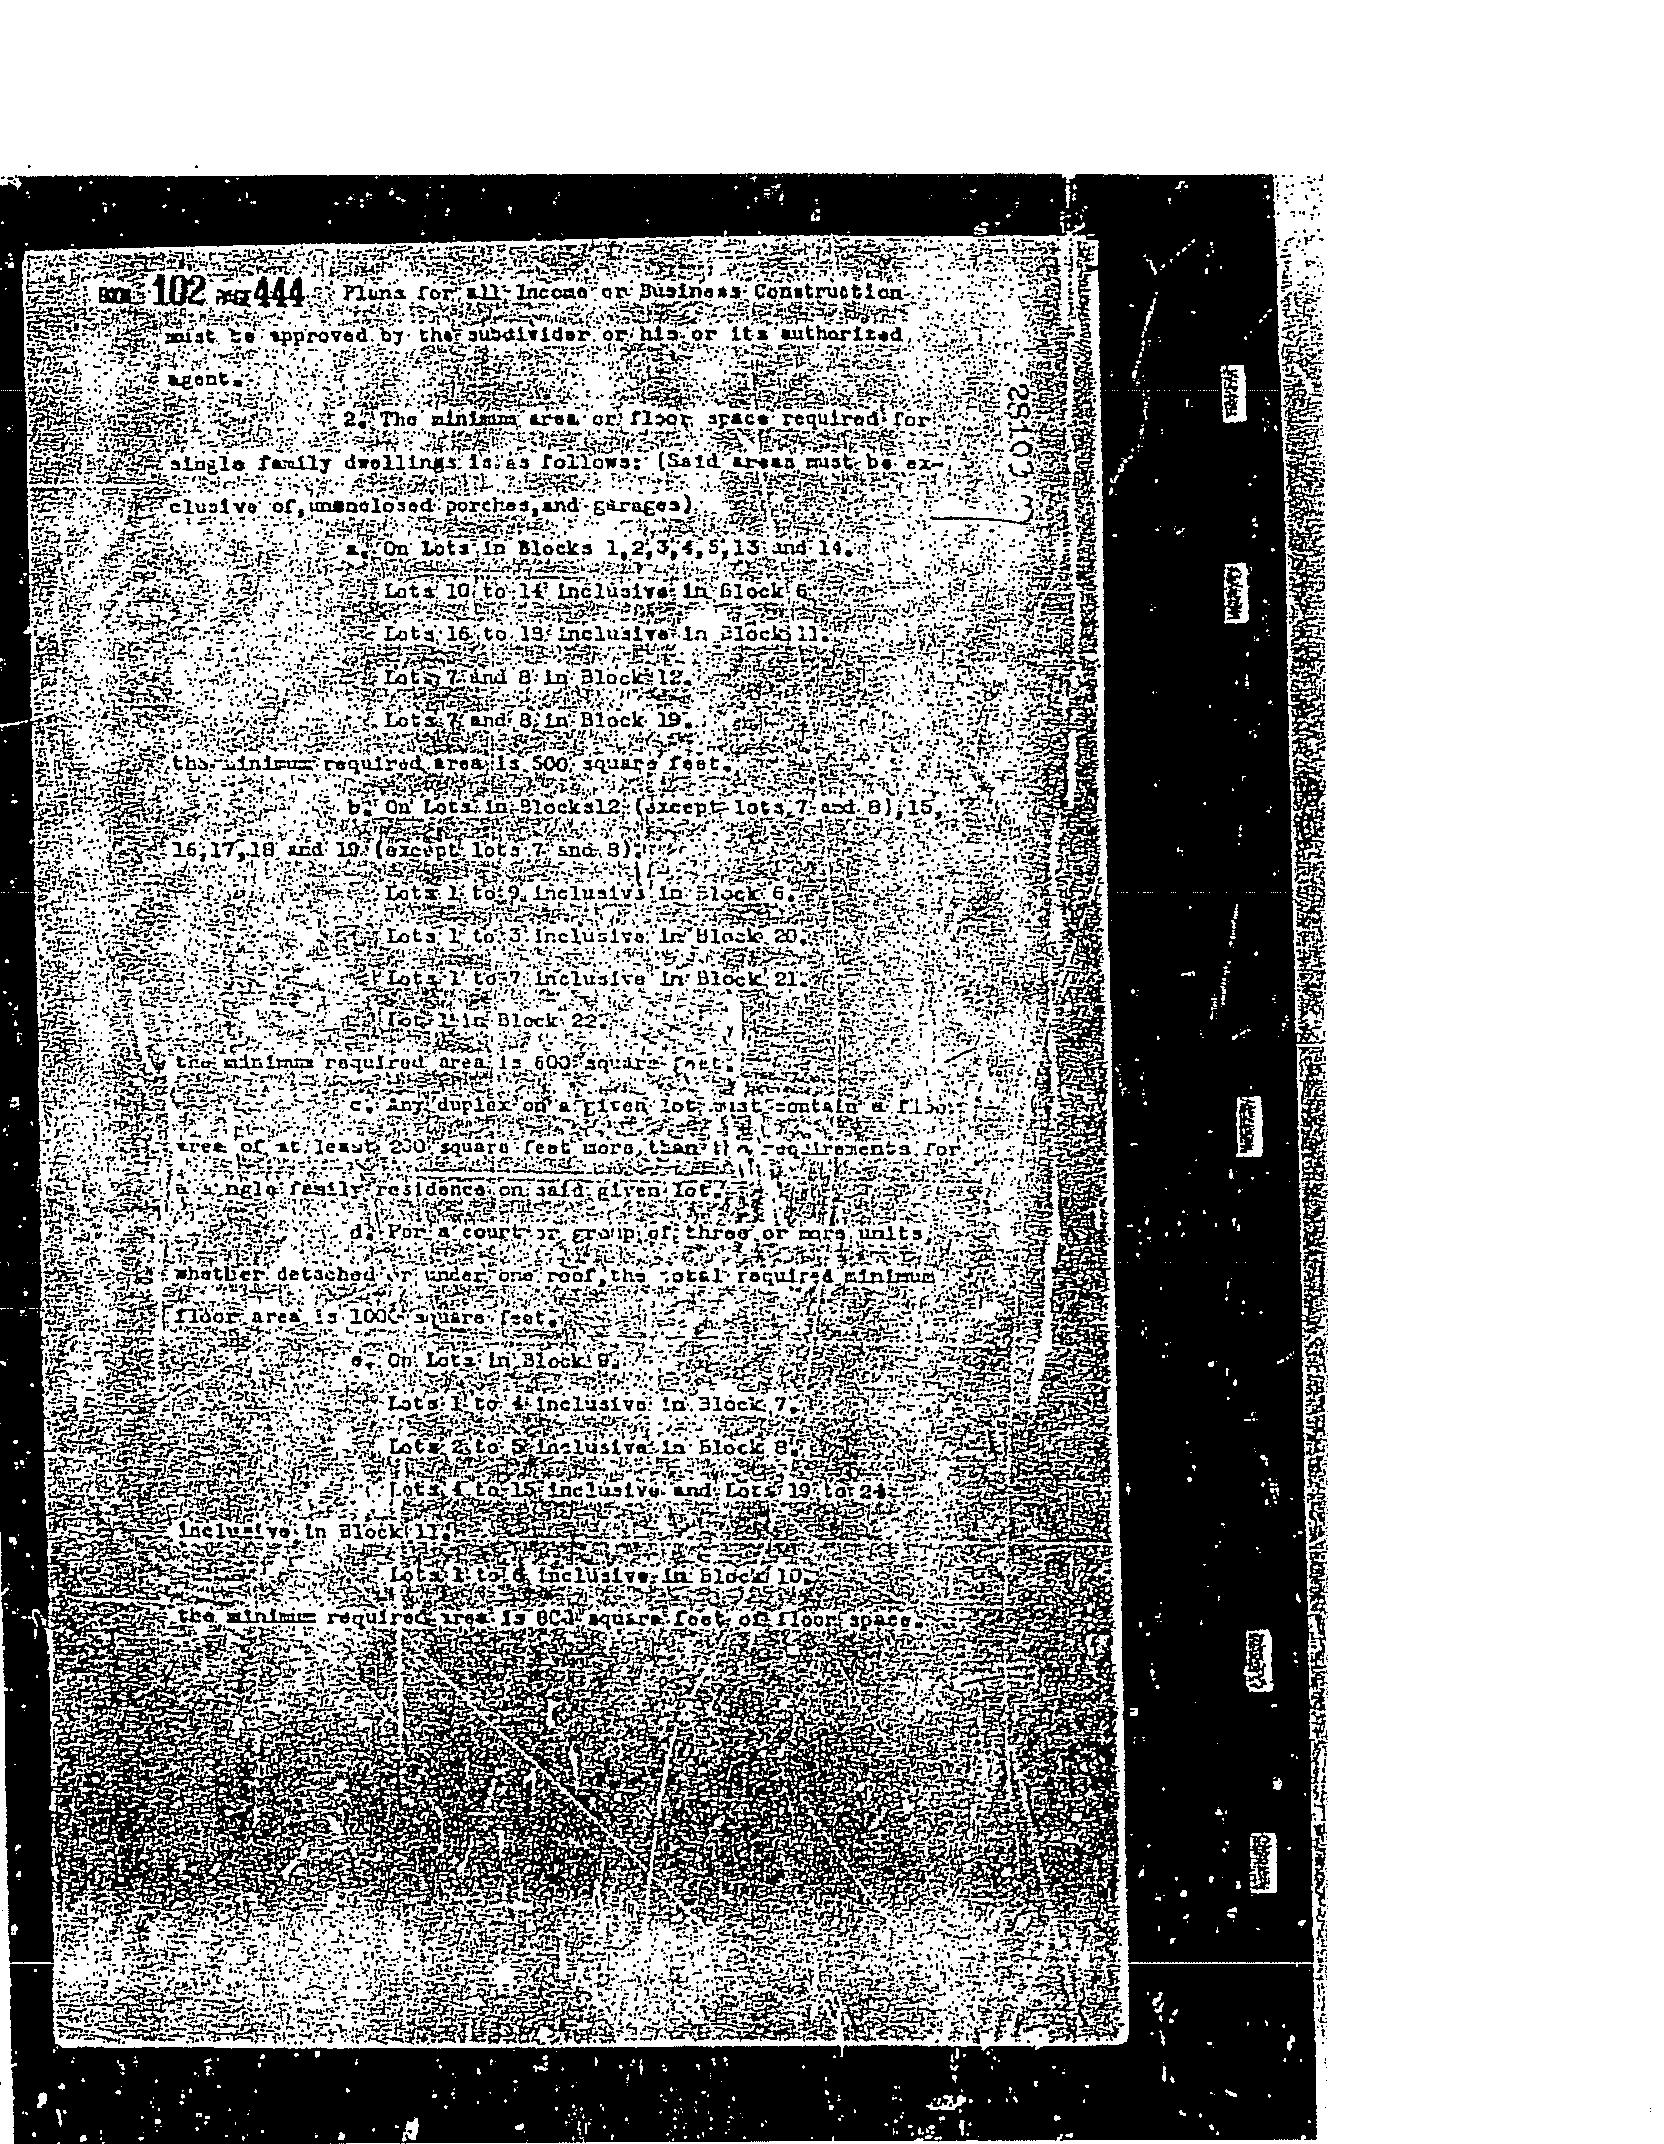 BOOK 102 PAGE 444 Plans for all Income or Business Construction
must be approved by the subdivider or his or its authorized
agent.
28103
2. The minimum area or floor space required for
single family dwellings is as follows: (Said areas must be ex-
clusive of, unenclosed porches, and garages)
a. On Lots in Blocks 1,2,3,4,5,13 and 14.
Lots 10 to 14 inclusive in Block 6
Lots 16 to 18 inclusive in Block 11.
Lots 7 and 8 in Block 12.
Lots 7 and 8 in Block 19.
the minimum required area is 500 square feet.
b. On Lots in Blocks 12 (except lots 7 and 8), 15,
16,17,18 and 19 (except lots 7 and 8).
Lots 1 to 9 inclusive in Block 6.
Lots 1 to 3 inclusive in Block 20.
Lots 1 to 7 inclusive in Block 21.
Lot 1 in Block 22.
the minimum required area is 600 square feet.
c. Any duplex on a given lot must contain a floor
area of at least 200 square feet more than the requirements for
a single family residence on said given lot.
d. For a court or group of three or more units,
whether detached or under one roof, the total required minimum
floor area is 1000 square feet.
e. On Lots in Block 9.
Lots 1 to 4 inclusive in Block 7.
Lots 2 to 5 inclusive in Block 8.
Lots to 15 inclusive and Lots 19 to 24
inclusive in Block 11.
Lots 1 to 6 inclusive in Block 10.
the minimum required area is 800 square feet of floor space.